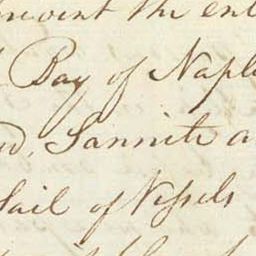 prevent the ent
Bay of Napl
Sannite a
Sail of Vessels